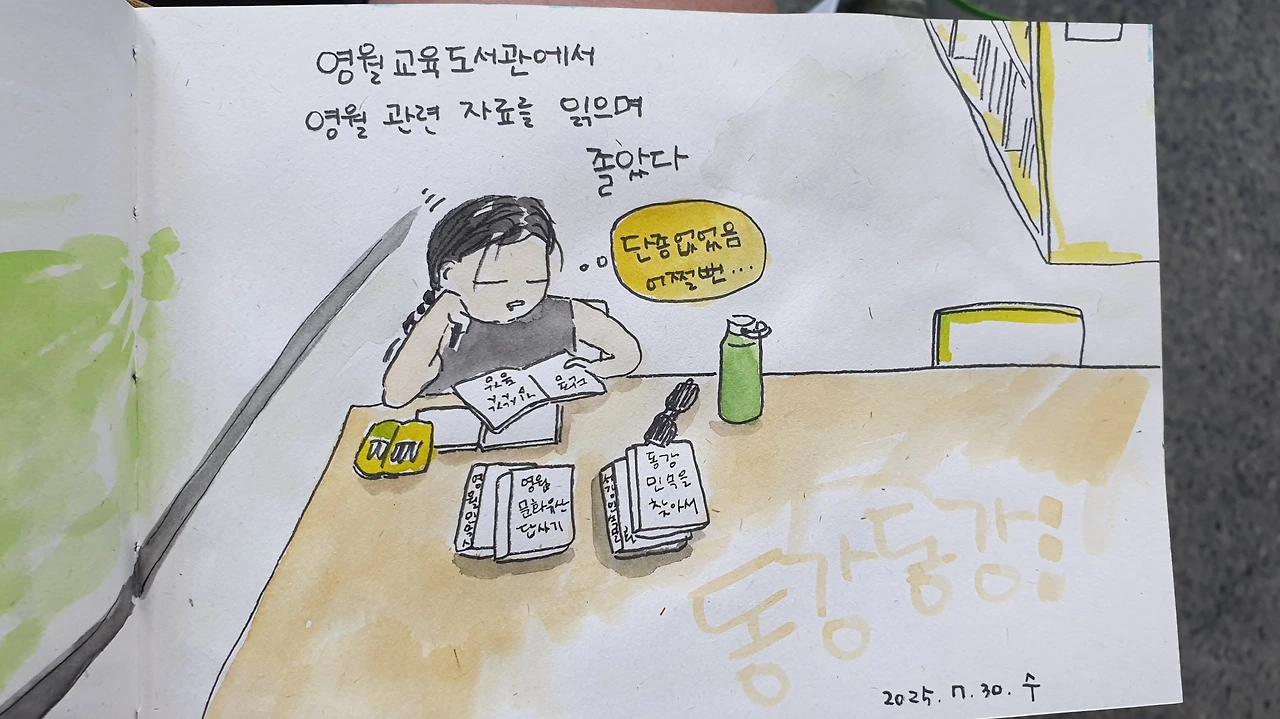 영월교육도서관에서
영월 관련 자료를 읽으며
졸았다
단종없었음
어쩔뻔...
영월
문화유산
답사기
동강
민속을
찾아서
동강동강
2025. 7. 30. 수